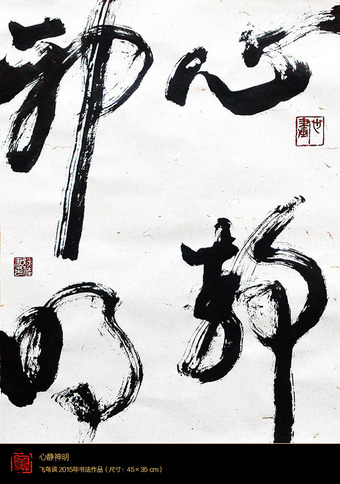 心静
神明
心静神明
飞鸟谈 2015年书法作品（尺寸：45×35 cm）